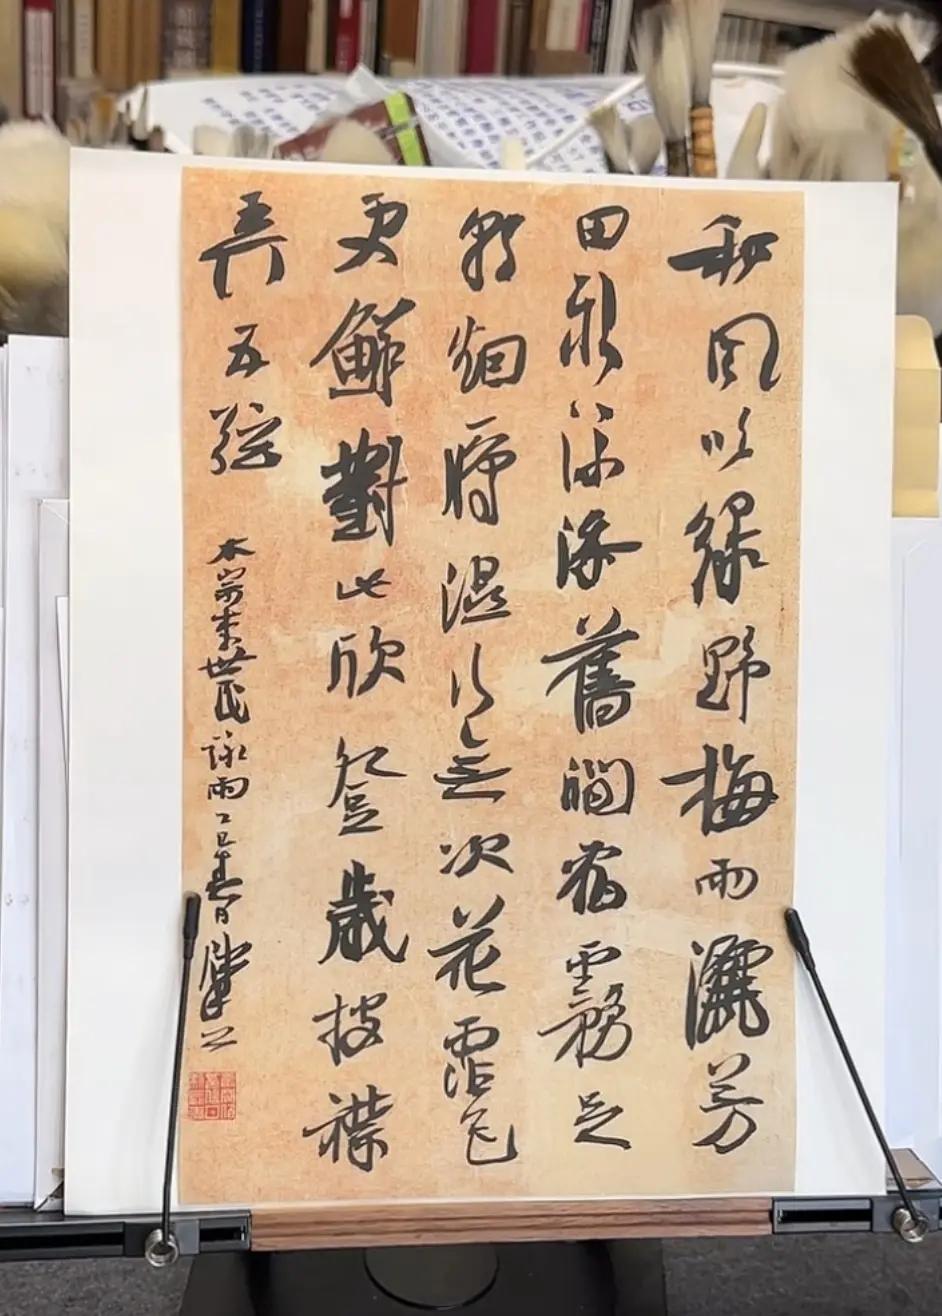 和风吹綠野梅雨灑芳
田新流添舊澗宿霧足
朝烟雁濕行無次花霑色
更鮮對此欣登歲披襟
弄五弦
宗李世民詠雨乙巳春月